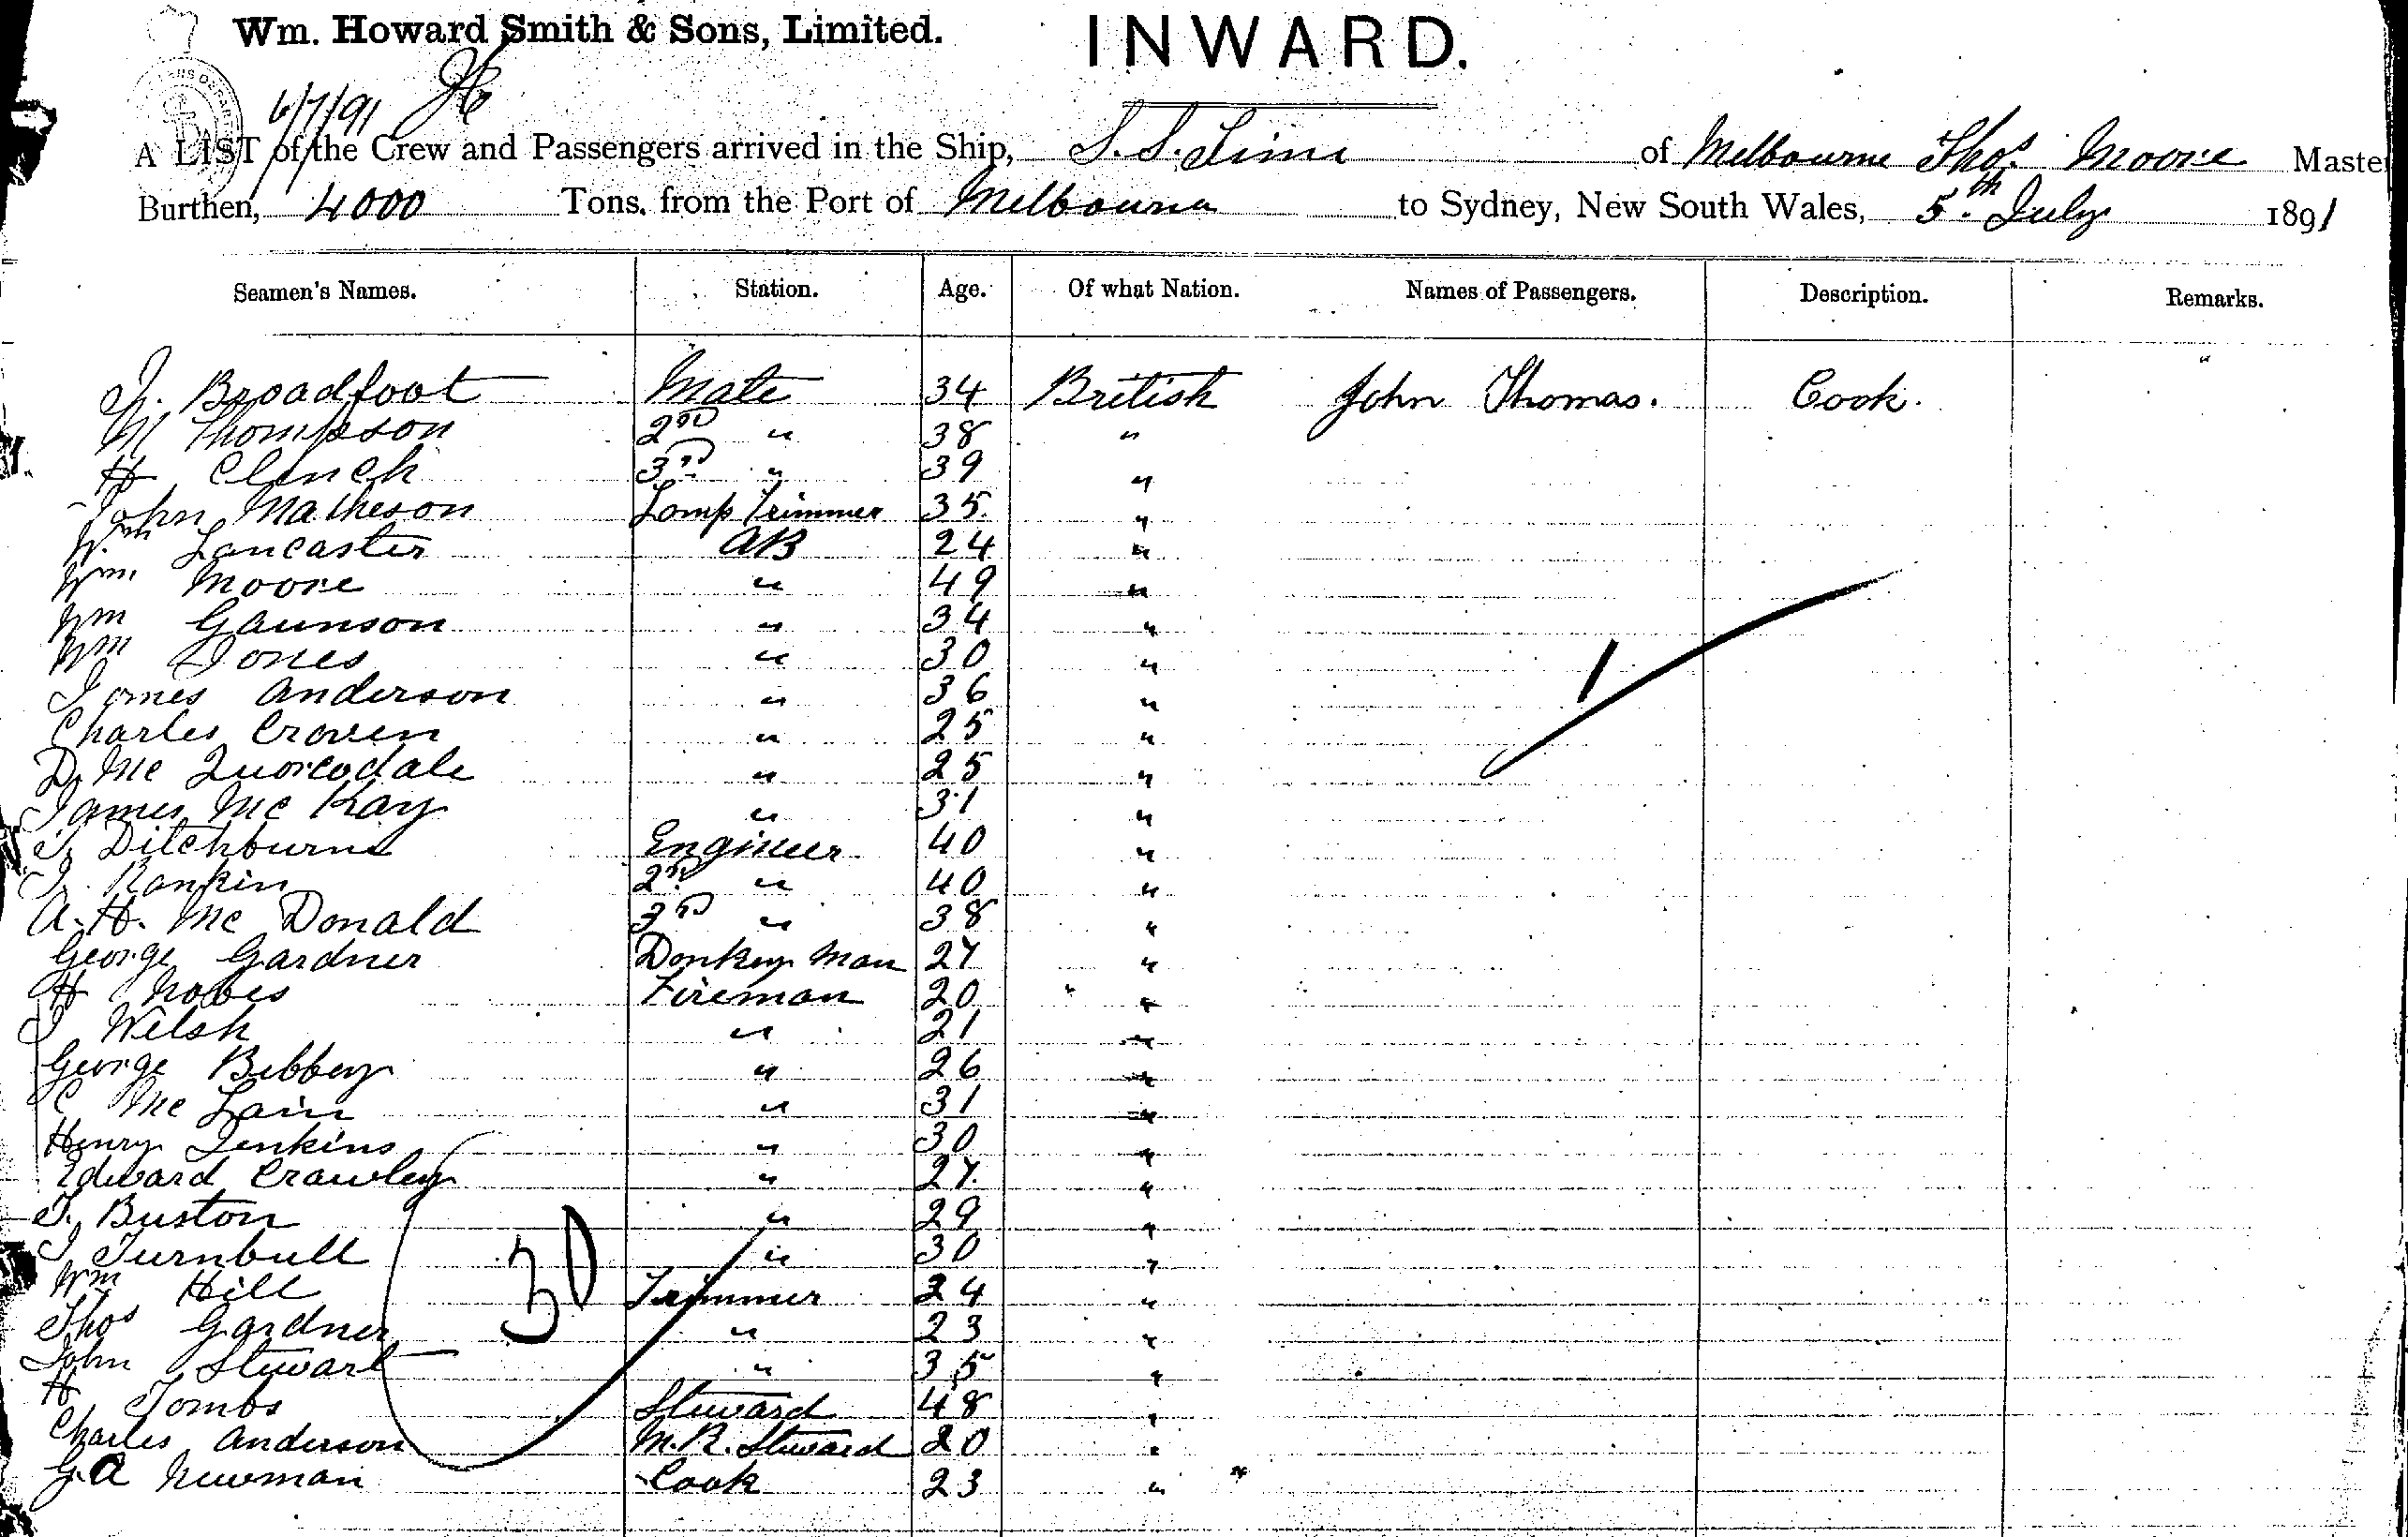 Wm. Howard Smith & Sons, Limited.
INWARD.
6/7/91
A LIST of the Crew and Passengers arrived in the Ship, S.S. Time of Melbourne Thos Moore Maste
Burthen, 4000 Tons. from the Port of Melbourne to Sydney, New South Wales, 5th July 1891
Seamen's Names. Station. Age. Of what Nation. Names of Passengers. Description. Remarks.
J. Broadfoot Mate 34 British John Thomas. Cook. "
M Thompson 2nd " 38 "
H Clinch 3rd " 39 "
John Matheson Lamp Trimmer 35. "
Wm Lancaster AB 24 "
Wm. Moore " 49 "
Wm Gaunson " 34 "
Wm Jones " 30 "
James Anderson " 36 "
Charles Craven " 25 "
D. Mc Quorcodale " 25 "
James Mc Kay " 31 "
T. Ditchburne Engineer 40 "
J. Rankin 2nd " 40 "
A. H. Mc Donald 3rd " 38 "
George Gardner Donkey Man 27 "
H Nobes Fireman 20 "
J Welsh " 21 "
George Bibbey " 26 "
C Mc Lain " 31 "
Henry Jenkins " 30 "
Edward Crawley " 27. "
T. Buston " 29 "
J Turnbull " 30 "
Wm Hill Trimmer 24 "
Thos Gardner " 23 "
John Stewart " 35 "
H Tombs Steward 48 "
Charles Anderson M.R. Steward 20 "
G. A Newman Cook 23 "
30
1